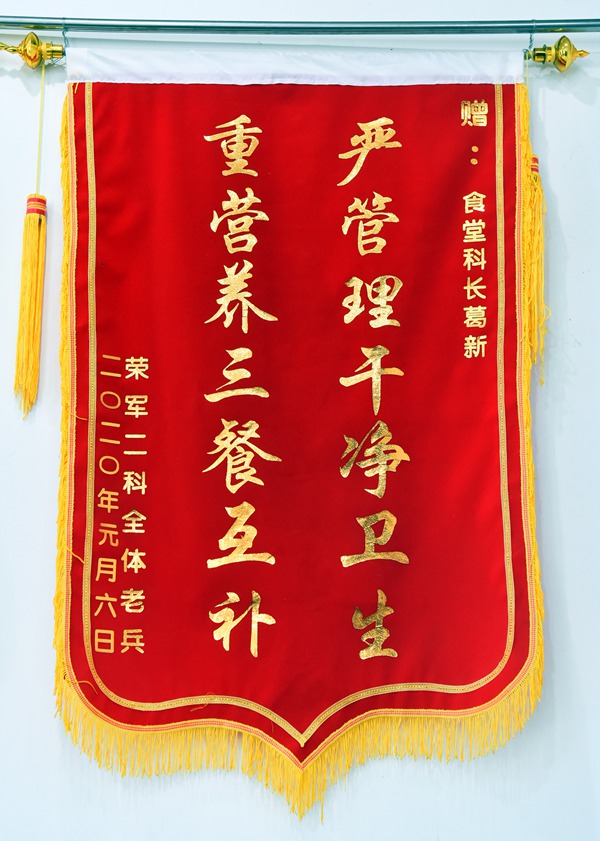 赠：食堂科长葛新
严管理干净卫生
重营养三餐互补
荣军二科全体老兵
二〇二〇年元月六日